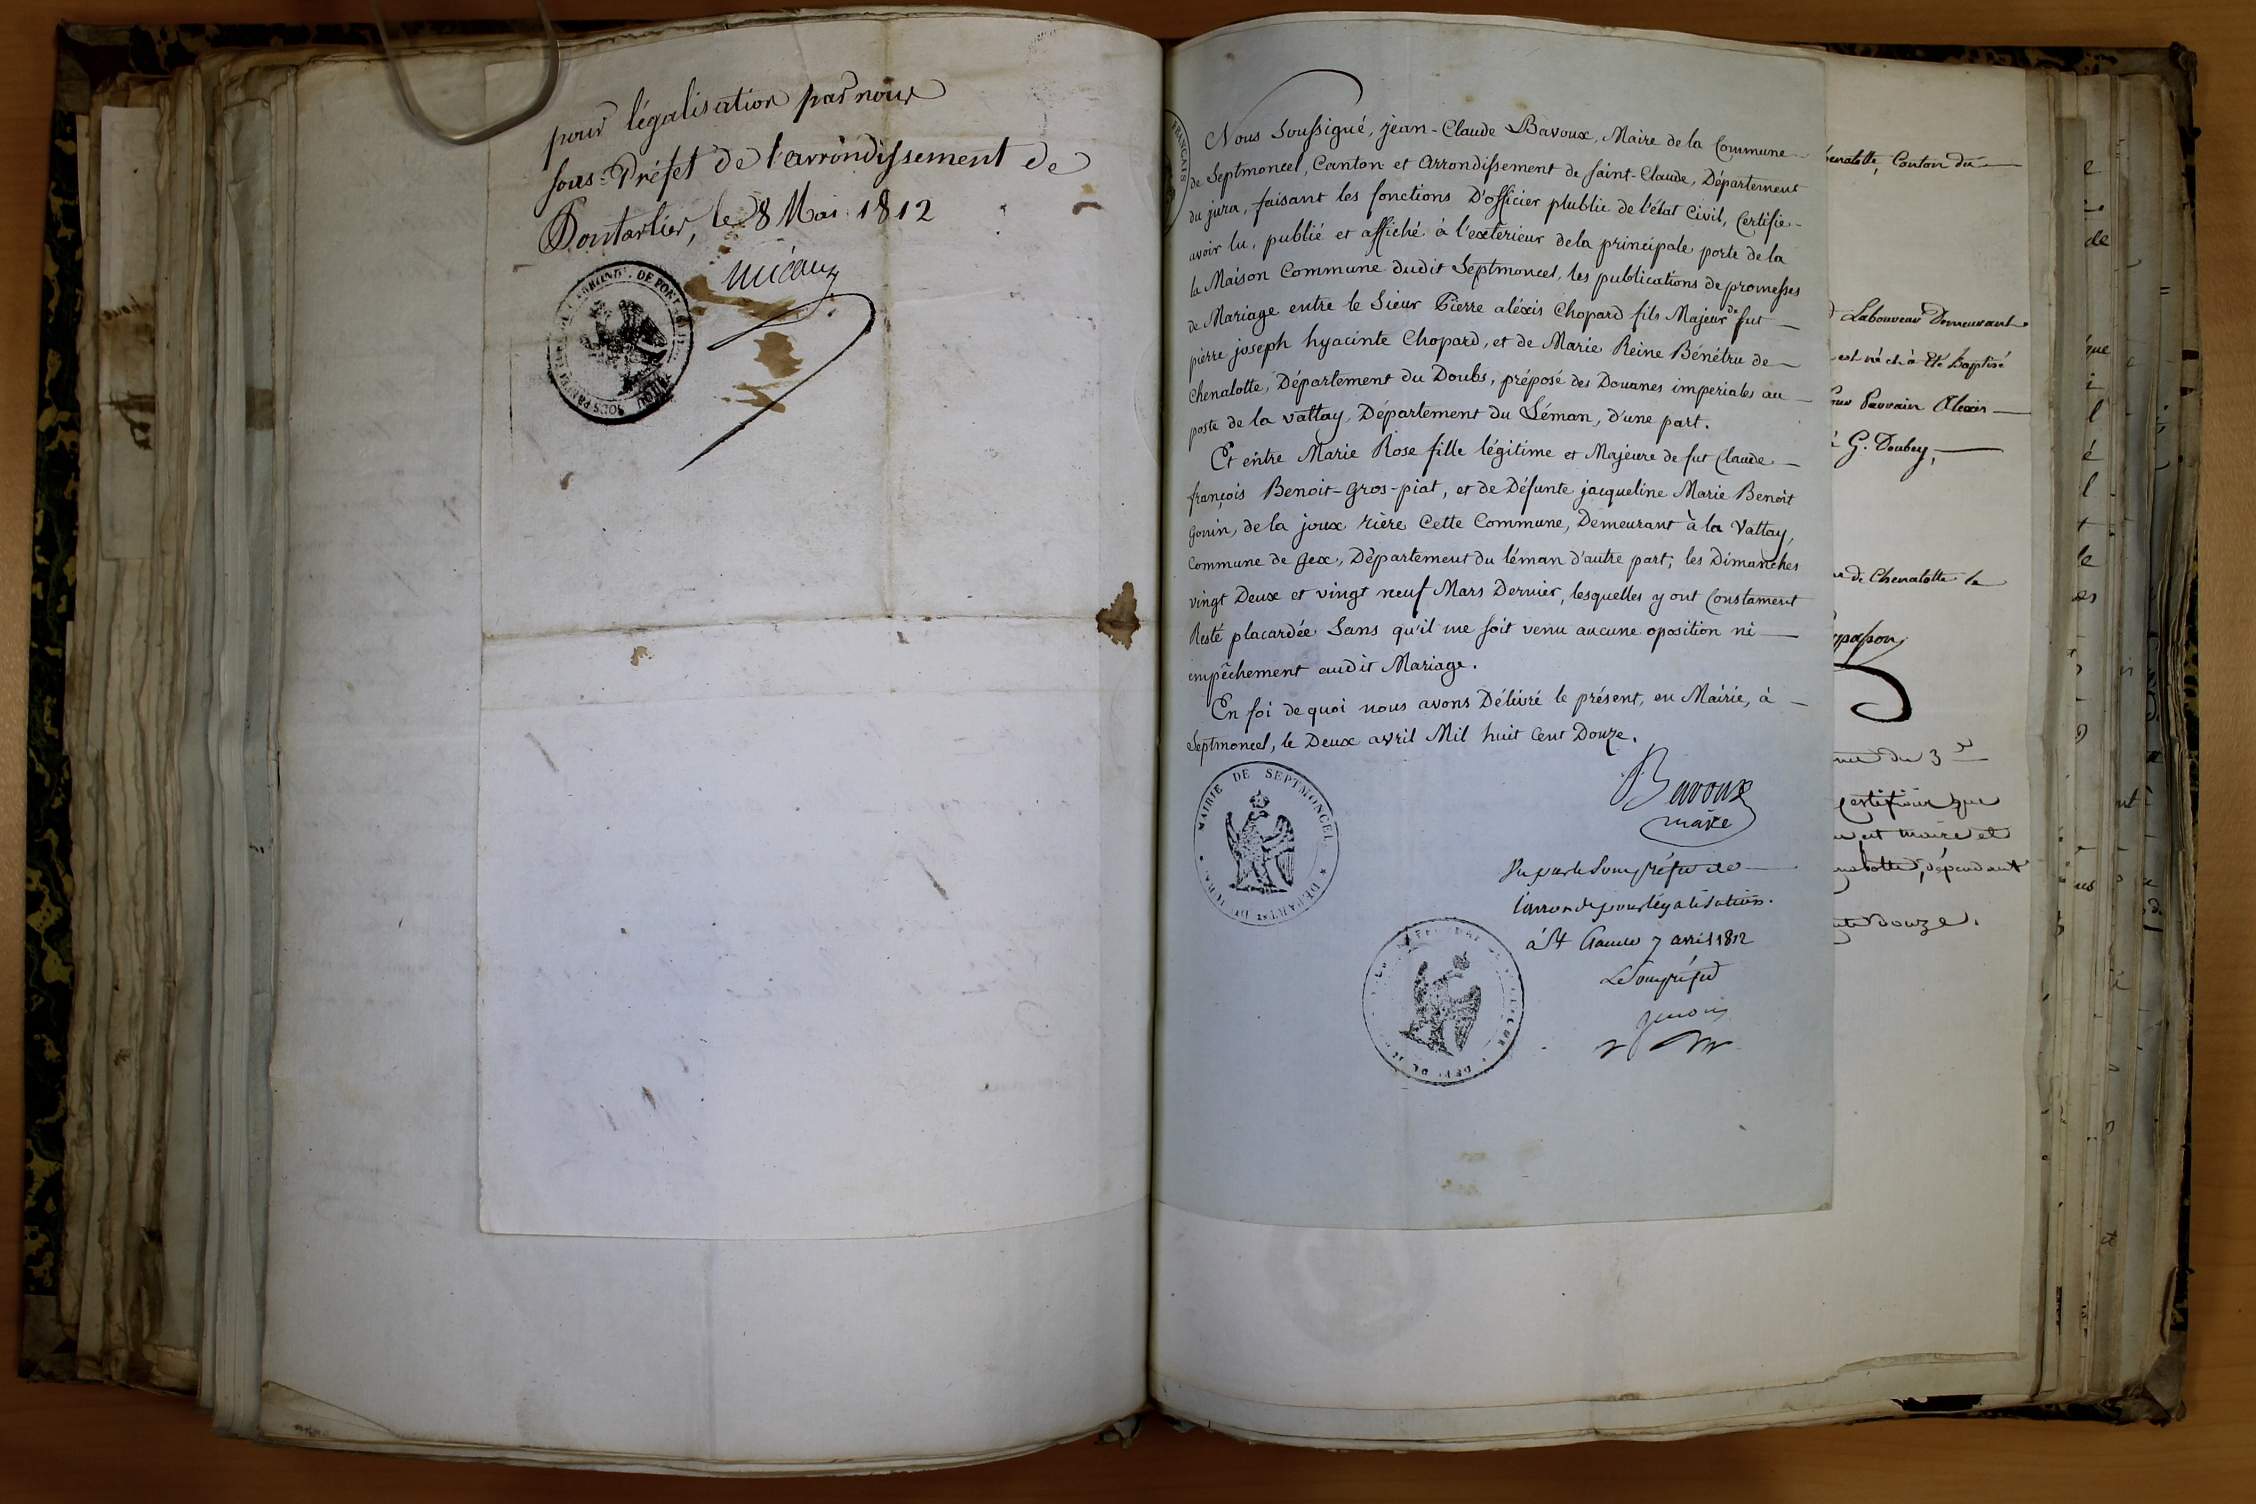 pour légalisation par nous
sous-Préfet de l'arrondissement de
Pontarlier, le 8 Mai 1812
micaux
FRANCAIS
Nous Soussigné, jean-Claude Bavoux, Maire de la Commune
de Septmoncel, Canton et Arrondissement de Saint-Claude, Département
du jura, faisant les fonctions D'officier plublic de l'état Civil, Certifie
avoir lu, publié et affiché à l'exterieur dela principale porte de la
la Maison Commune dudit Septmoncel, les publications de promesses
de Mariage entre le Sieur Pierre aléxis Chopard fils Majeur de fut
pierre joseph hyacinte Chopard, et de Marie Reine Bénétru de
Chenalotte, Département du Doubs, préposé des Douanes imperiales au
poste de la Vattay, Département du Léman, d'une part.
Et entre Marie Rose fille légitime et Majeure de fut Claude
françois Benoit-Gros-piat, et de Défunte jacqueline Marie Benoit
Gonin, de la joux rière Cette Commune, Demeurant à la Vattay,
Commune de Gex, Département du léman d'autre part; les Dimanches
vingt Deux et vingt neuf Mars Dernier, lesquelles y ont Constament
Resté placardée Sans qu'il me soit venu aucune oposition ni
empêchement audit Mariage.
En foi de quoi nous avons Délivré le présent, en Mairie, à
Septmoncel, le Deux avril Mil huit Cent Douze.
MAIRIE DE SEPTMONCEL * DEPARTt DU JURA *
Bavoux
maire
Vu par le Souspréfet de
l'arrond. pour légalisation.
à St Claude 7 avril 1812
Le Souspréfet
Chenalotte, Canton du
Laboureur Demeurant
est né et à été Baptisé
pour Parrain Alexis
G. Doubey,
de Chenalotte le
du 3
certifions que
est maire et
Chenalotte, dépendant
douze.